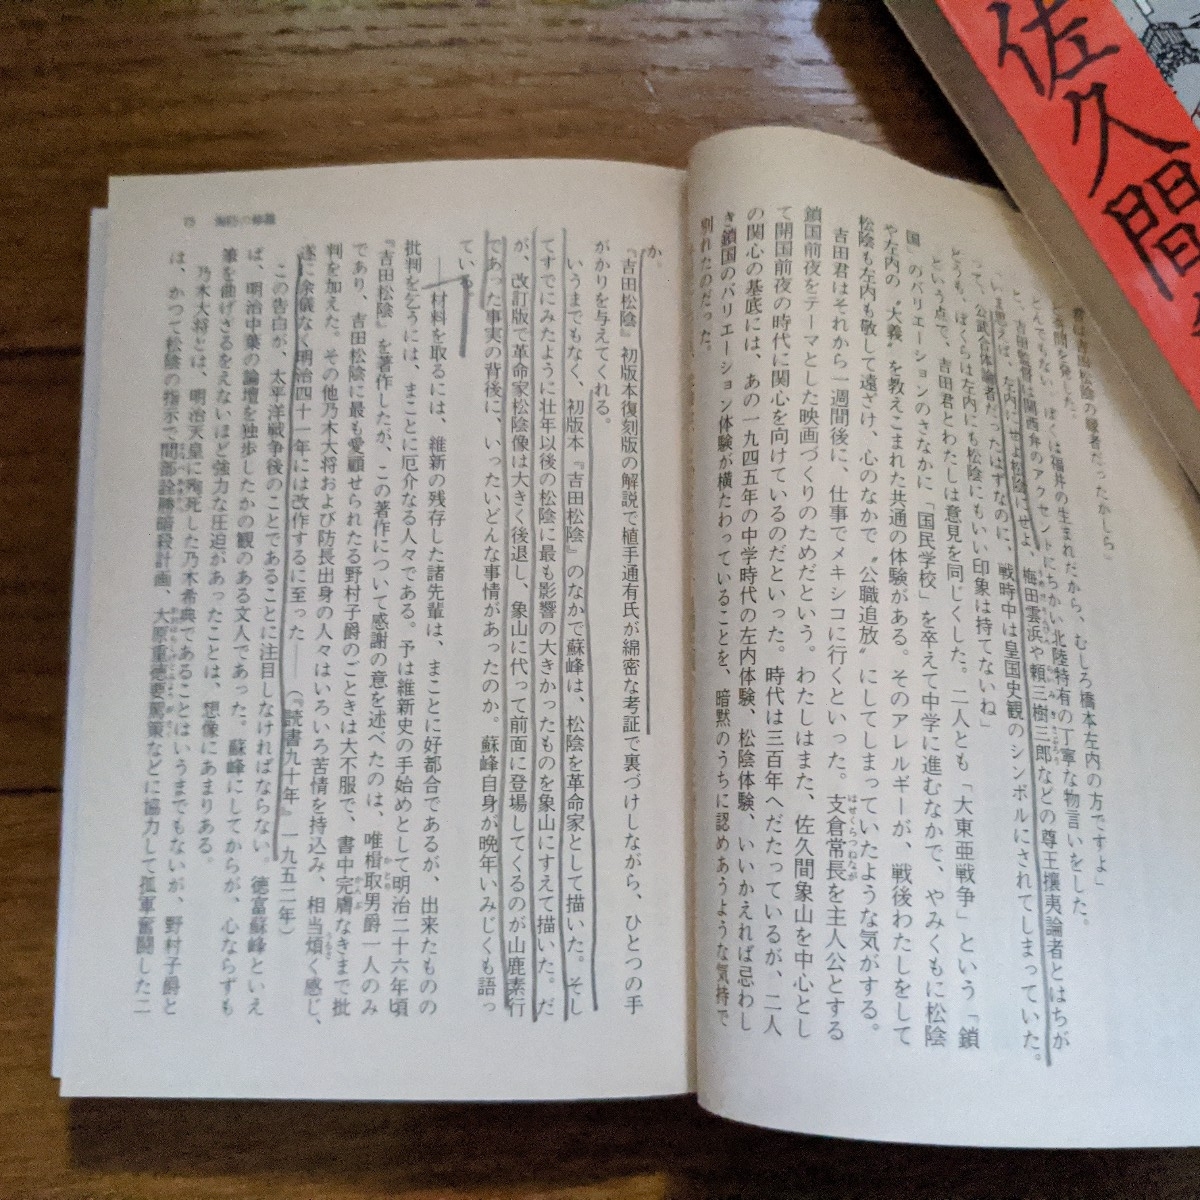 佐久間
君は吉田松陰の縁者だったかしら」
と質問を発した。
とんでもない ぼくは福井の生まれだから、むしろ橋本左内の方ですよ」
と、吉田監督は関西弁のアクセントにちかい北陸特有の丁寧な物言いをした。
「いま思えば、左内にせよ松陰にせよ、梅田雲浜や頼三樹三郎などの尊王攘夷論者とはちが
って、公武合体論者だったはずなのに、戦時中は皇国史観のシンボルにされてしまっていた。
とうも、ぼくらは左内にも松陰にもいい印象は持てないね」
という点で、吉田君とわたしは意見を同じくした。二人とも「大東亜戦争」という「鎖
国」のバリエーションのさなかに「国民学校」を卒えて中学に進むなかで、やみくもに松陰
や左内の〝大義〟を教えこまれた共通の体験がある。そのアレルギーが、戦後わたしをして
松陰も左内も敬して遠ざけ、心のなかで〝公職追放〟にしてしまっていたような気がする。
吉田君はそれから一週間後に、仕事でメキシコに行くといった。支倉常長を主人公とする
はせくらつねなが
鎖国前夜をテーマとした映画づくりのためだという。わたしはまた、佐久間象山を中心とし
て開国前夜の時代に関心を向けているのだといった。時代は三百年へだたっているが、二人
の関心の基底には、あの一九四五年の中学時代の左内体験、松陰体験、いいかえれば忌わし
き鎖国のバリエーション体験が横たわっていることを、暗黙のうちに認めあうような気持で
別れたのだった。
75 海防の修羅
か。
『吉田松陰』初版本復刻版の解説で植手通有氏が綿密な考証で裏づけしながら、ひとつの手
がかりを与えてくれる。
いうまでもなく、初版本『吉田松陰』のなかで蘇峰は、松陰を革命家として描いた。そし
てすでにみたように壮年以後の松陰に最も影響の大きかったものを象山にすえて描いた。だ
が、改訂版で革命家松陰像は大きく後退し、象山に代って前面に登場してくるのが山鹿素行
であった事実の背後に、いったいどんな事情があったのか。蘇峰自身が晩年いみじくも語っ
ている。
――材料を取るには、維新の残存した諸先輩は、まことに好都合であるが、出来たものの
批判を乞うには、まことに厄介なる人々である。予は維新史の手始めとして明治二十六年頃
『吉田松陰』を著作したが、この著作について感謝の意を述べたのは、唯楫取男爵一人のみ
かとり
であり、吉田松陰に最も愛顧せられたる野村子爵のごときは大不服で、書中完膚なきまで批
かんぷ
判を加えた。その他乃木大将および防長出身の人々はいろいろ苦情を持込み、相当煩く感じ、
うるさ
遂に余儀なく明治四十一年には改作するに至った――（『読書九十年』一九五二年）
この告白が、太平洋戦争後のことであることに注目しなければならない。徳富蘇峰といえ
ば、明治中葉の論壇を独歩したかの観のある文人であった。蘇峰にしてからが、心ならずも
筆を曲げざるをえないほど強力な圧迫があったことは、想像にあまりある。
乃木大将とは、明治天皇に殉死した乃木希典であることはいうまでもないが、野村子爵と
は、かつて松陰の指示で間部詮勝暗殺計画、大原重徳要駕策などに協力して孤軍奮闘した二